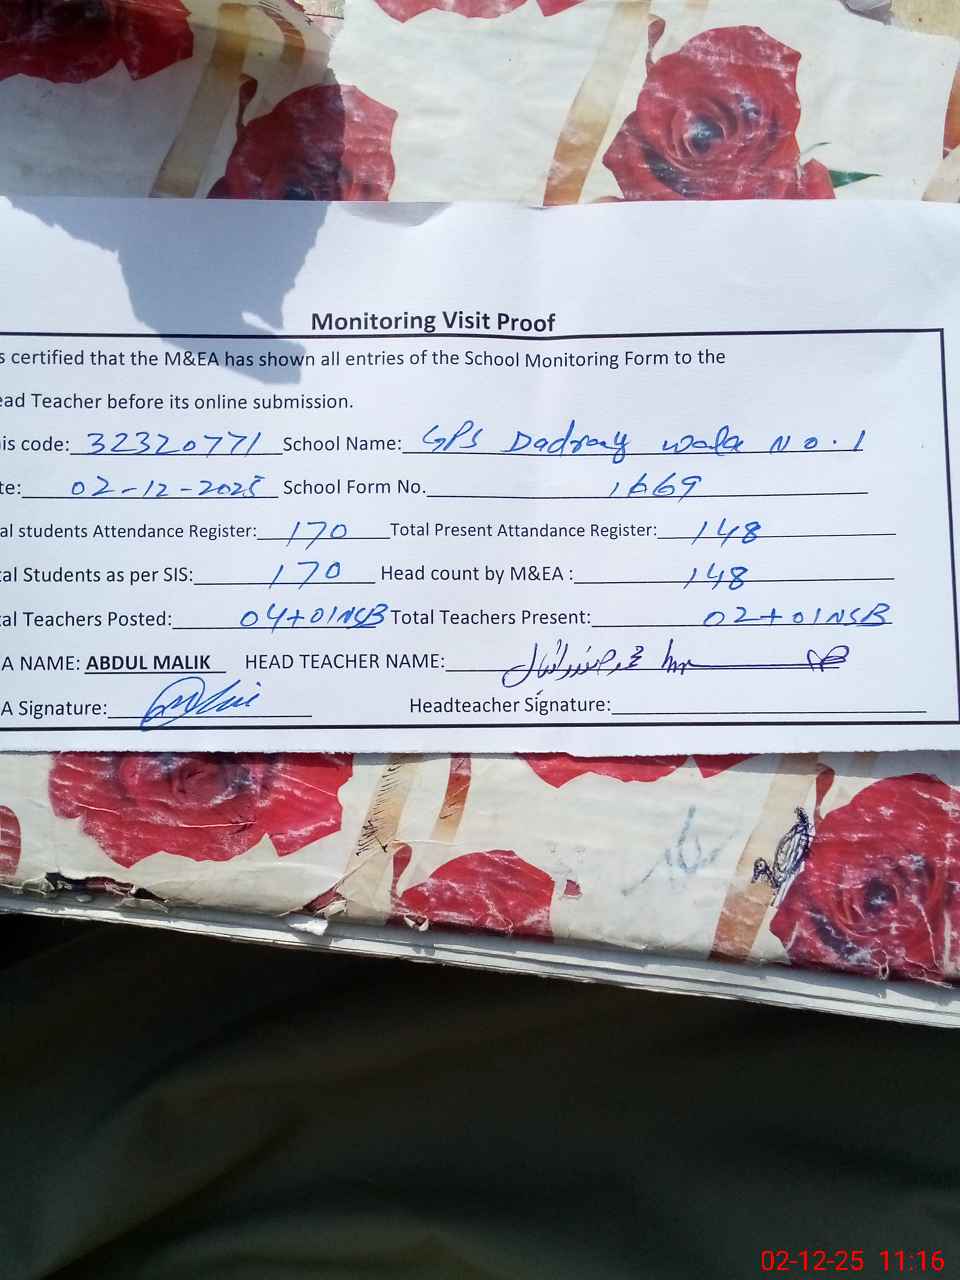 Monitoring Visit Proof
s certified that the M&EA has shown all entries of the School Monitoring Form to the
ead Teacher before its online submission.
is code: 32320771 School Name: GPS Dadray wala No. 1
te: 02-12-2025 School Form No. 1669
al students Attendance Register: 170 Total Present Attandance Register: 148
al Students as per SIS: 170 Head count by M&EA : 148
al Teachers Posted: 04+01NSB Total Teachers Present: 02+01NSB
A NAME: ABDUL MALIK HEAD TEACHER NAME:
A Signature: Headteacher Signature:
02-12-25 11:16